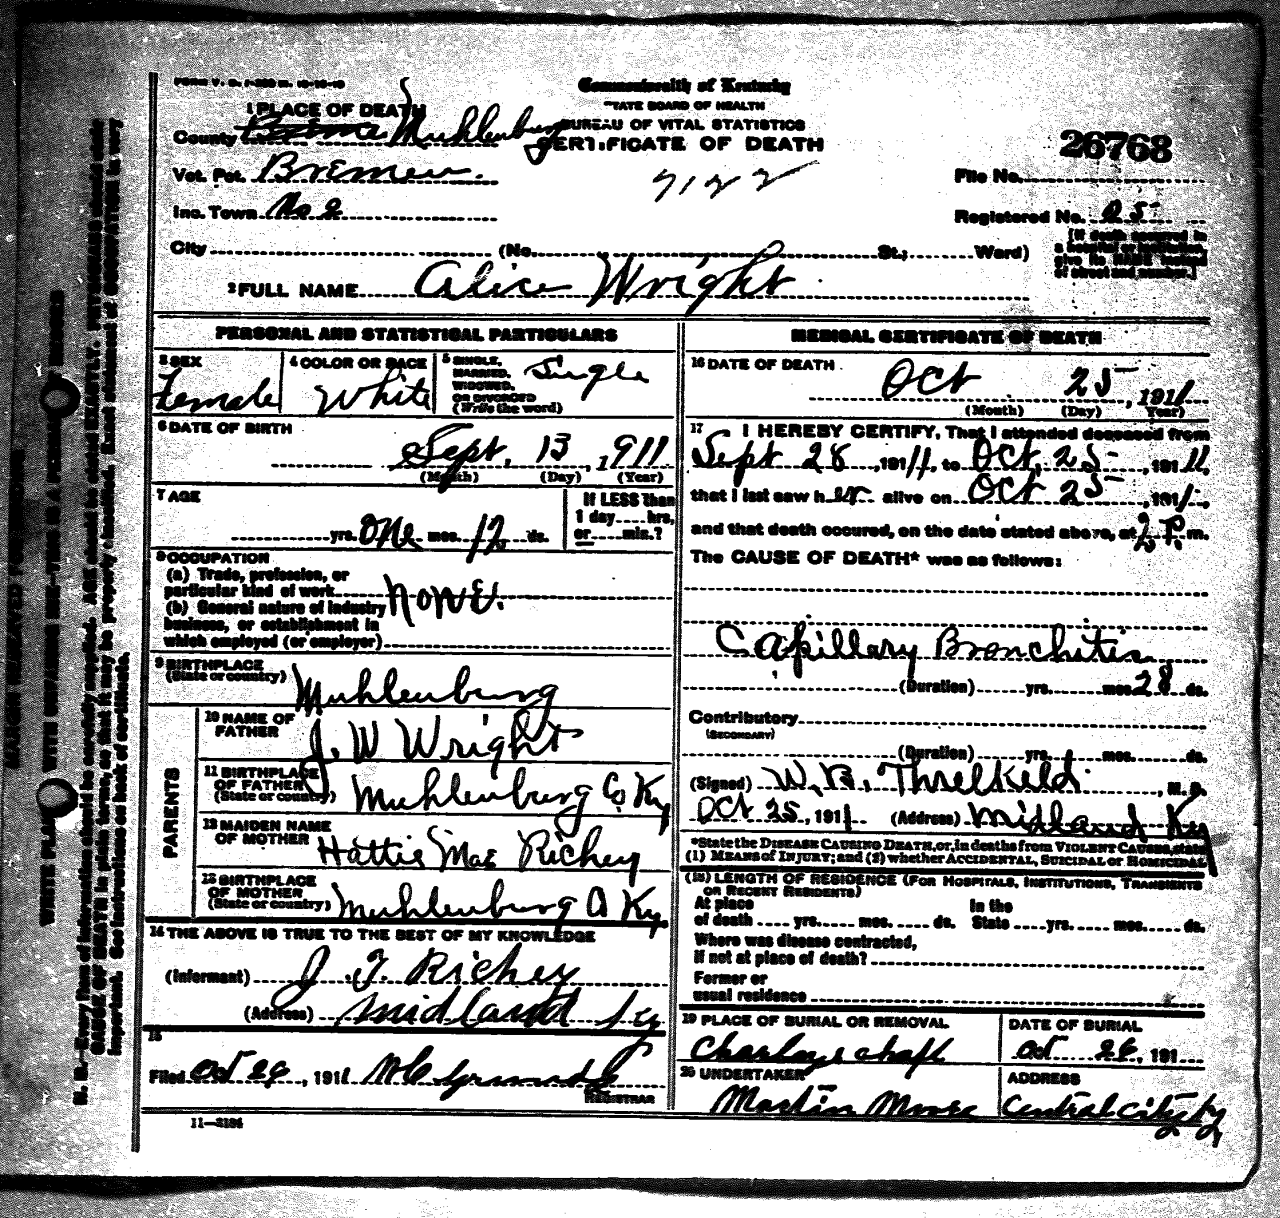 FORM V. S.
Commonwealth of Kentucky
STATE BOARD OF HEALTH
BUREAU OF VITAL STATISTICS
CERTIFICATE OF DEATH
26768
7122
1 PLACE OF DEATH
County Muhlenburg
Vot. Pct. Bremen.
Inc. Town No 2
City (No. St.; Ward)
File No.
Registered No. 25
[If death occurred in
a hospital or institution,
give its NAME instead
of street and number.]
2 FULL NAME Alice Wright
PERSONAL AND STATISTICAL PARTICULARS
3 SEX
Female
4 COLOR OR RACE
White
5 SINGLE,
MARRIED,
WIDOWED,
OR DIVORCED
(Write the word)
Single
6 DATE OF BIRTH
Sept. 13, 1911
(Month) (Day) (Year)
7 AGE
yrs. One mos. 12 ds.
If LESS than
1 day....hrs,
or....min.?
8 OCCUPATION
(a) Trade, profession, or
particular kind of work
(b) General nature of industry
business, or establishment in
which employed (or employer)
None.
9 BIRTHPLACE
(State or country)
Muhlenburg
PARENTS
10 NAME OF
FATHER
J. W Wright
11 BIRTHPLACE
OF FATHER
(State or country)
Muhlenburg Co Ky
12 MAIDEN NAME
OF MOTHER
Hattie Mae Richey
13 BIRTHPLACE
OF MOTHER
(State or country)
Muhlenburg Co Ky
14 THE ABOVE IS TRUE TO THE BEST OF MY KNOWLEDGE
(Informant) J. T. Richey
(Address) Midland Ky
15
Filed Oct 26, 1911
REGISTRAR
11—3184
MEDICAL CERTIFICATE OF DEATH
16 DATE OF DEATH
Oct 25, 1911
(Month) (Day) Year)
17 I HEREBY CERTIFY, That I attended deceased from
Sept 28, 1911, to Oct, 25, 1911,
that I last saw her alive on Oct 25, 1911,
and that death occured, on the date stated above, at 2 P. m.
The CAUSE OF DEATH* was as follows:
Capillary Bronchitis
(Duration) yrs. mos. 28 ds.
Contributory
(SECONDARY)
(Duration) yrs. mos. ds.
(Signed) W. B. Threlkeld, M. D.
Oct 25, 1911 (Address) Midland Ky
*State the DISEASE CAUSING DEATH, or, in deaths from VIOLENT CAUSES, state
(1) MEANS of INJURY; and (2) whether ACCIDENTAL, SUICIDAL or HOMICIDAL
(18) LENGTH OF RESIDENCE (FOR HOSPITALS, INSTITUTIONS, TRANSIENTS
OR RECENT RESIDENTS)
At place In the
of death yrs. mos. ds. State yrs. mos. ds.
Where was disease contracted,
if not at place of death?
Former or
usual residence
19 PLACE OF BURIAL OR REMOVAL
DATE OF BURIAL
Oct 26, 191
20 UNDERTAKER
Martin Moore
ADDRESS
Central City Ky
MARGIN RESERVED FOR BINDING
WRITE PLAINLY WITH UNFADING INK—THIS IS A PERMANENT RECORD
N. B.—Every item of information should be carefully supplied. AGE should be stated EXACTLY. PHYSICIANS should state
CAUSE OF DEATH in plain terms, so that it may be properly classified. Exact statement of OCCUPATION is very
important. See instructions on back of certificate.